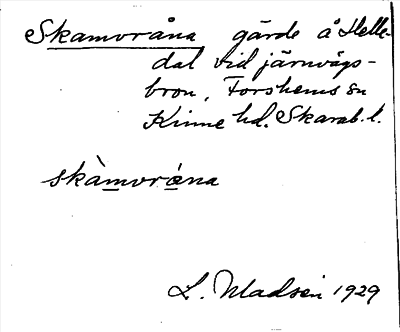 Skamvråna gärde å Helle-
dal vid järnvägs-
bron, Forshems sn
Kinne hd. Skarab. l.
skàmvråna
L. Madsén 1929